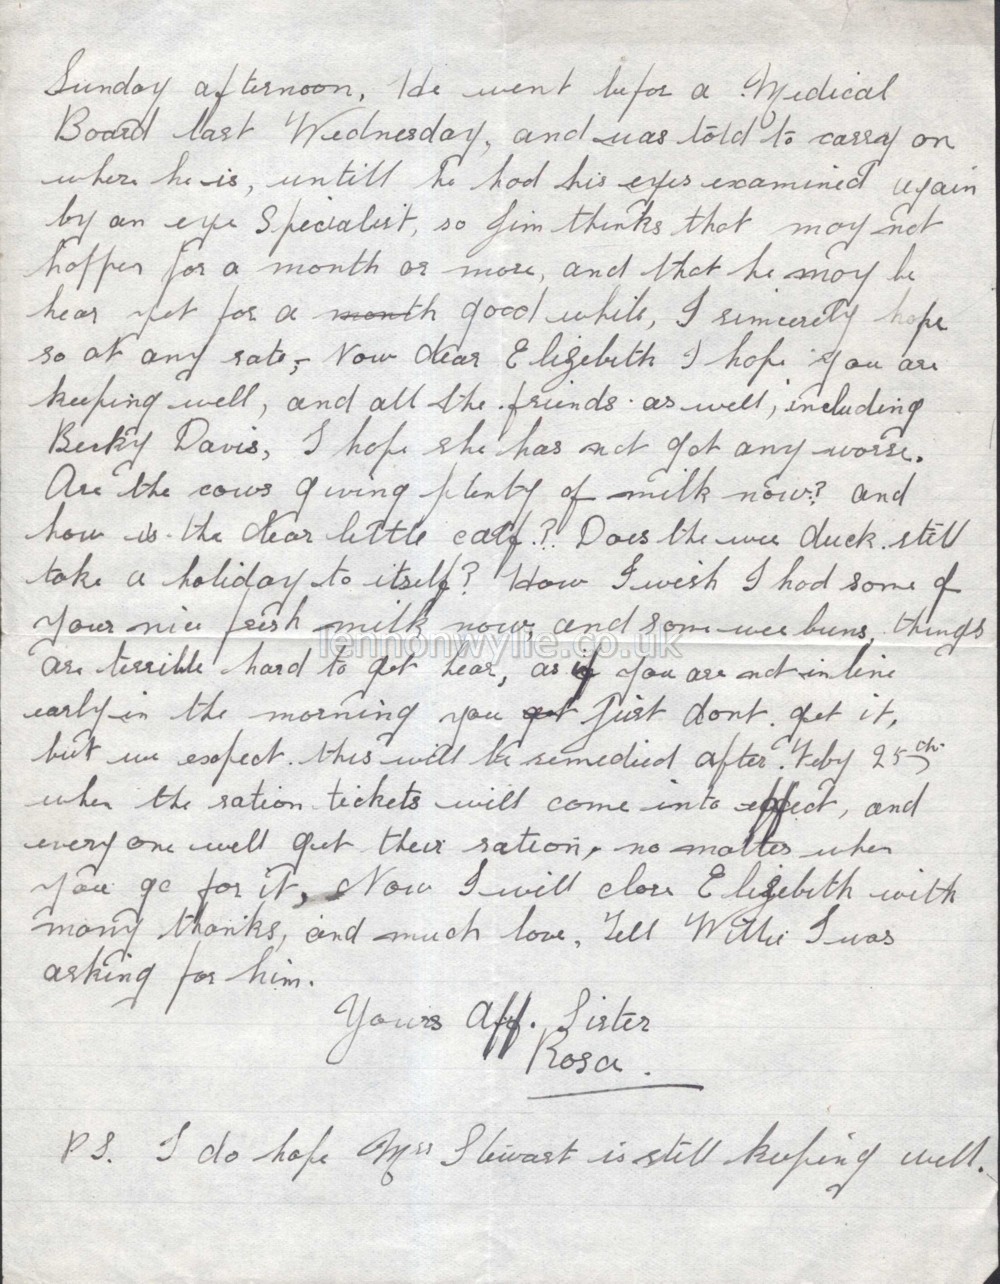 Sunday afternoon, He went befor a Medical
Board last Wednesday, and was told to carry on
where he is, untill he had his eyes examined again
by an eye Specialist, so Jim thinks that may not
happen for a month or more, and that he may be
hear yet for a month good while, I sincerely hope
so at any rate, Now dear Elizebeth I hope you are
keeping well, and all the friends as well, including
Becky Davis, I hope she has not got any worse.
Are the cows giving plenty of milk now? and
how is the dear little calf? Does the wee duck still
take a holiday to itself? How I wish I had some of
your nice fresh milk now, and some wee buns, things
are terrible hard to get hear, as if you are not in line
early in the morning you get just dont get it,
but we expect this will be remedied after Feby 25th
when the ration tickets will come into effect, and
every one well get their ration, no matter when
you go for it, Now I will close Elizebeth with
many thanks, and much love, Tell Willie I was
asking for him.
Yours Aff. Sister
Rosa.
P.S. I do hope Mrs Stewart is still keeping well.
lennonwylie.co.uk